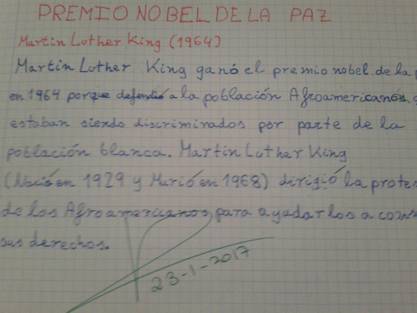 PREMIO NOBEL DE LA PAZ
Martin Lother King (1964)
Martin Luther King ganó el premio nobel de la
en 1964 porque defendió a la población Afroamericanos,
estaban siendo discriminados por parte de la
población blanca. Martin Luther King
(Nació en 1929 y Murió en 1968) dirigió la
de los Afroamericanos, para ayudarlos a
sus derechos.
23-1-2017